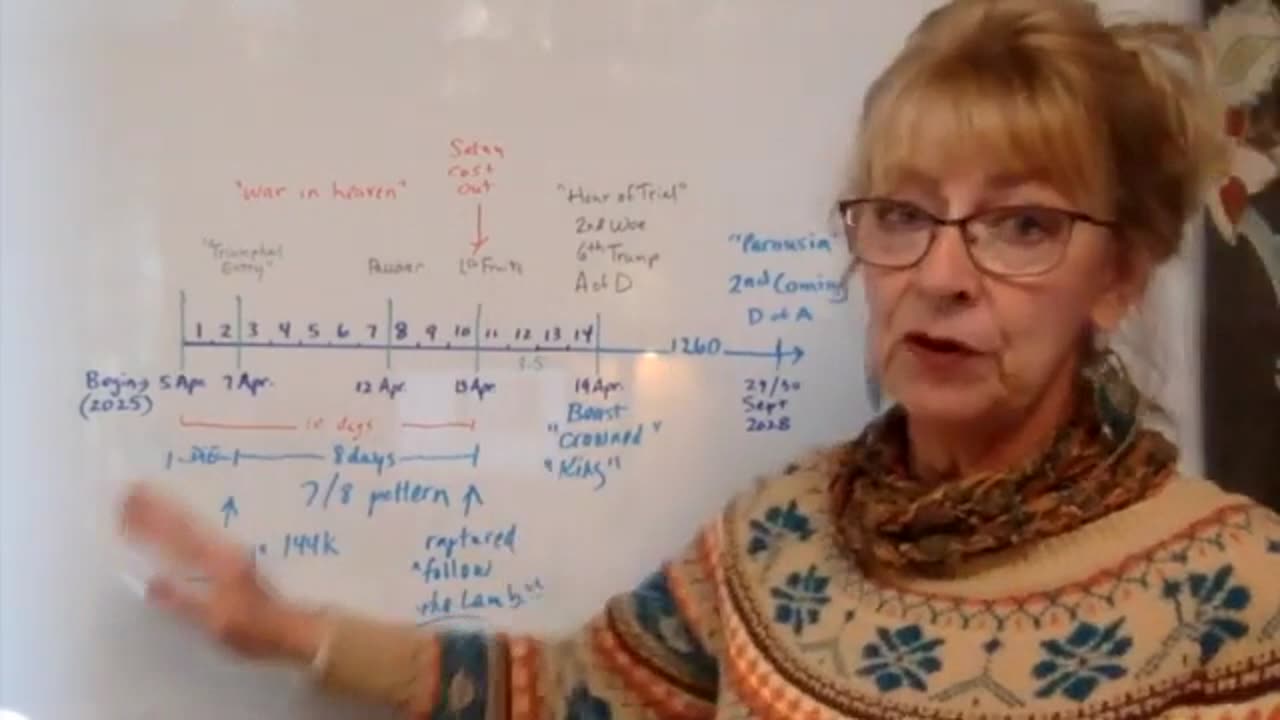 Satan
cast
out
"War in heaven"
"Hour of Trial"
2nd Woe
6th Trump
A of D
"Triumphal
Entry"
1st Fruits
"Parousia"
2nd Coming
D of A
1 2 3 4 5 6 7 8 9 10 11 12 13 14
1260
Begins
(2025)
5 Apr. 7 Apr. 12 Apr. 15 Apr. 19 Apr.
29/30
Sept
2028
10 days
8 days
Beast
"Crowned"
"King"
7/8 pattern
144k
raptured
"follow
the Lamb"